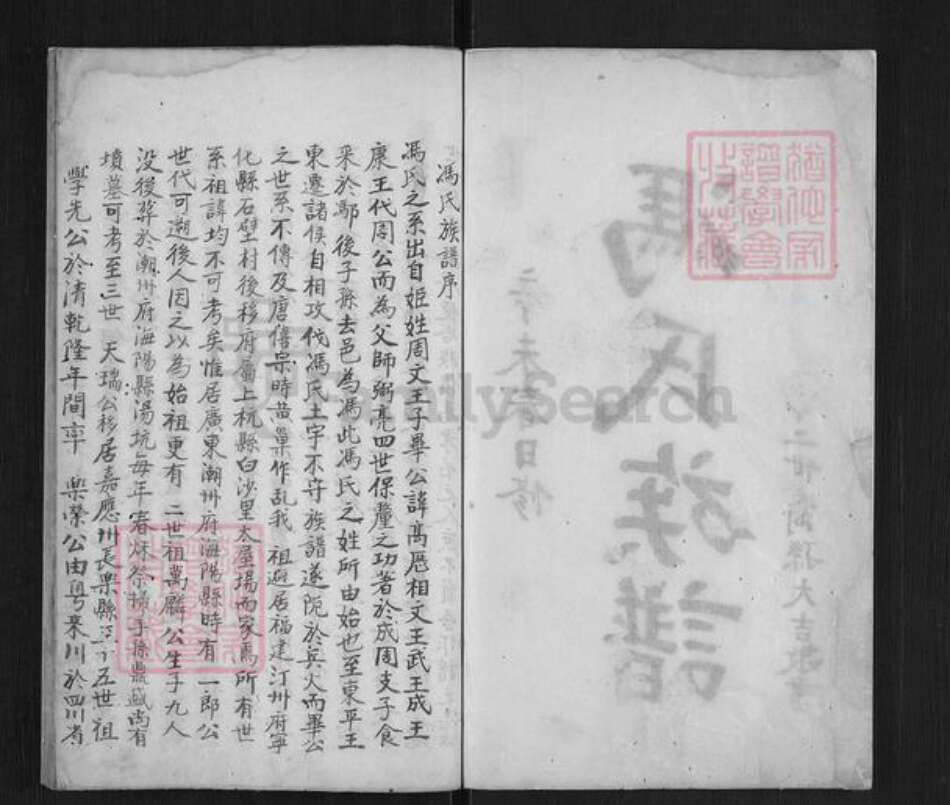 馮氏族譜序
馮氏之系出自姬姓周文王子畢公諱高歷相文王武王成王
康王代周公而為父師弼亮四世保釐之功著於成周支子食
采於鄢後子孫去邑為馮此馮氏之姓所由始也至東平王
東遷諸侯自相攻伐馮氏土宇不守族譜遂阨於兵火而畢公
之世系不傳及唐僖宗時黃巢作乱我 祖避居福建汀州府寧
化縣石壁村後移府屬上杭縣白沙里太屋場而家焉所有世
系祖諱均不可考矣惟居廣東潮州府海陽縣時有一郎公
世代可遡後人因之以為始祖更有 二世祖萬麟公生子九人
没後葬於潮州府海陽縣湯坑每年春秋祭掃子孫鼎盛尚有
墳墓可考至三世 天瑞公移居嘉應州長樂縣 十五世祖
學先公於清乾隆年間率 樂榮公由粵來川於四川省
馮氏族譜
FamilySearch